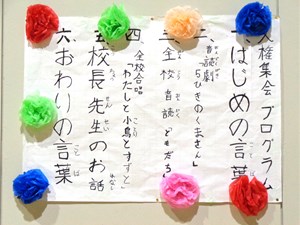 人権集会 プログラム
一、はじめの言葉
二、音読劇
ひきのくまさん」
三、全校音読「ともだち
四、全校合唱
「わたしと小鳥とすずと」
五、校長先生のお話
六、おわりの言葉